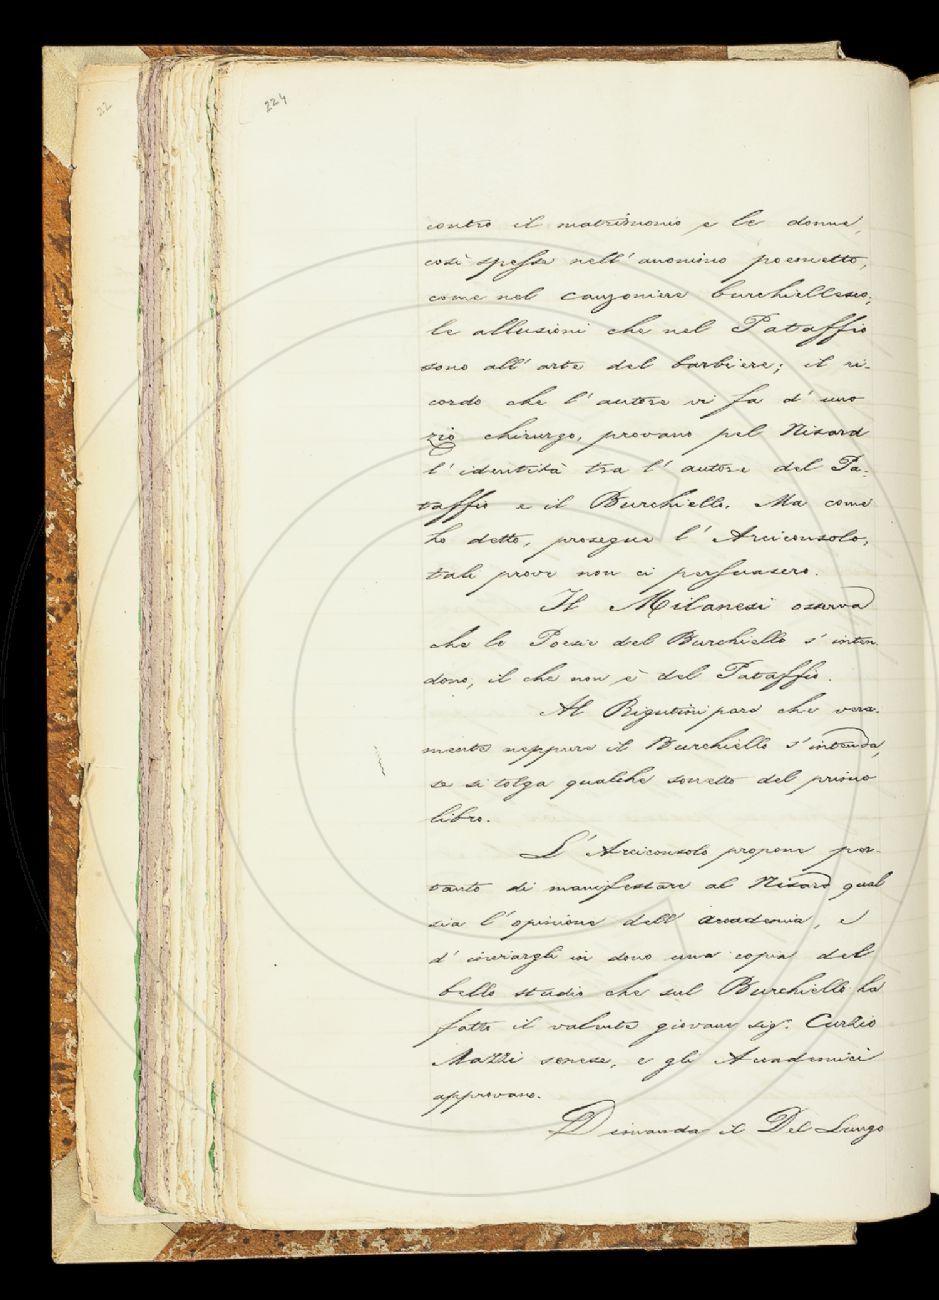 22
224
contro il matrimonio e le donne,
così spesse nell' anonimo poemetto,
come nel canzoniere burchiellesco;
le allusioni che nel Pataffio
sono all' arte del barbiere; il ri-
cordo che l' autore vi fa d' uno
zio chirurgo, provano pel Nisard
l' identità tra l' autore del Pa-
taffio e il Burchiello. Ma come
ho detto, prosegue l' Arciconsolo,
tali prove non ci persuasero.
Il Milanesi osserva
che le Poesie del Burchiello s' inten
dono, il che non è del Pataffio.
Al Rigutini pare che vera-
mente neppure il Burchiello s' intenda,
se si tolga qualche sonetto del primo
libro.
L' Arciconsolo propone per-
tanto di manifestare al Nisard qual
sia l' opinione dell' Accademia, e
d' inviargli in dono una copia del
bello studio che sul Burchiello ha
fatto il valente giovane sig. Curzio
Mazzi senese, e gli Accademici
approvano.
Dimanda il Del Lungo